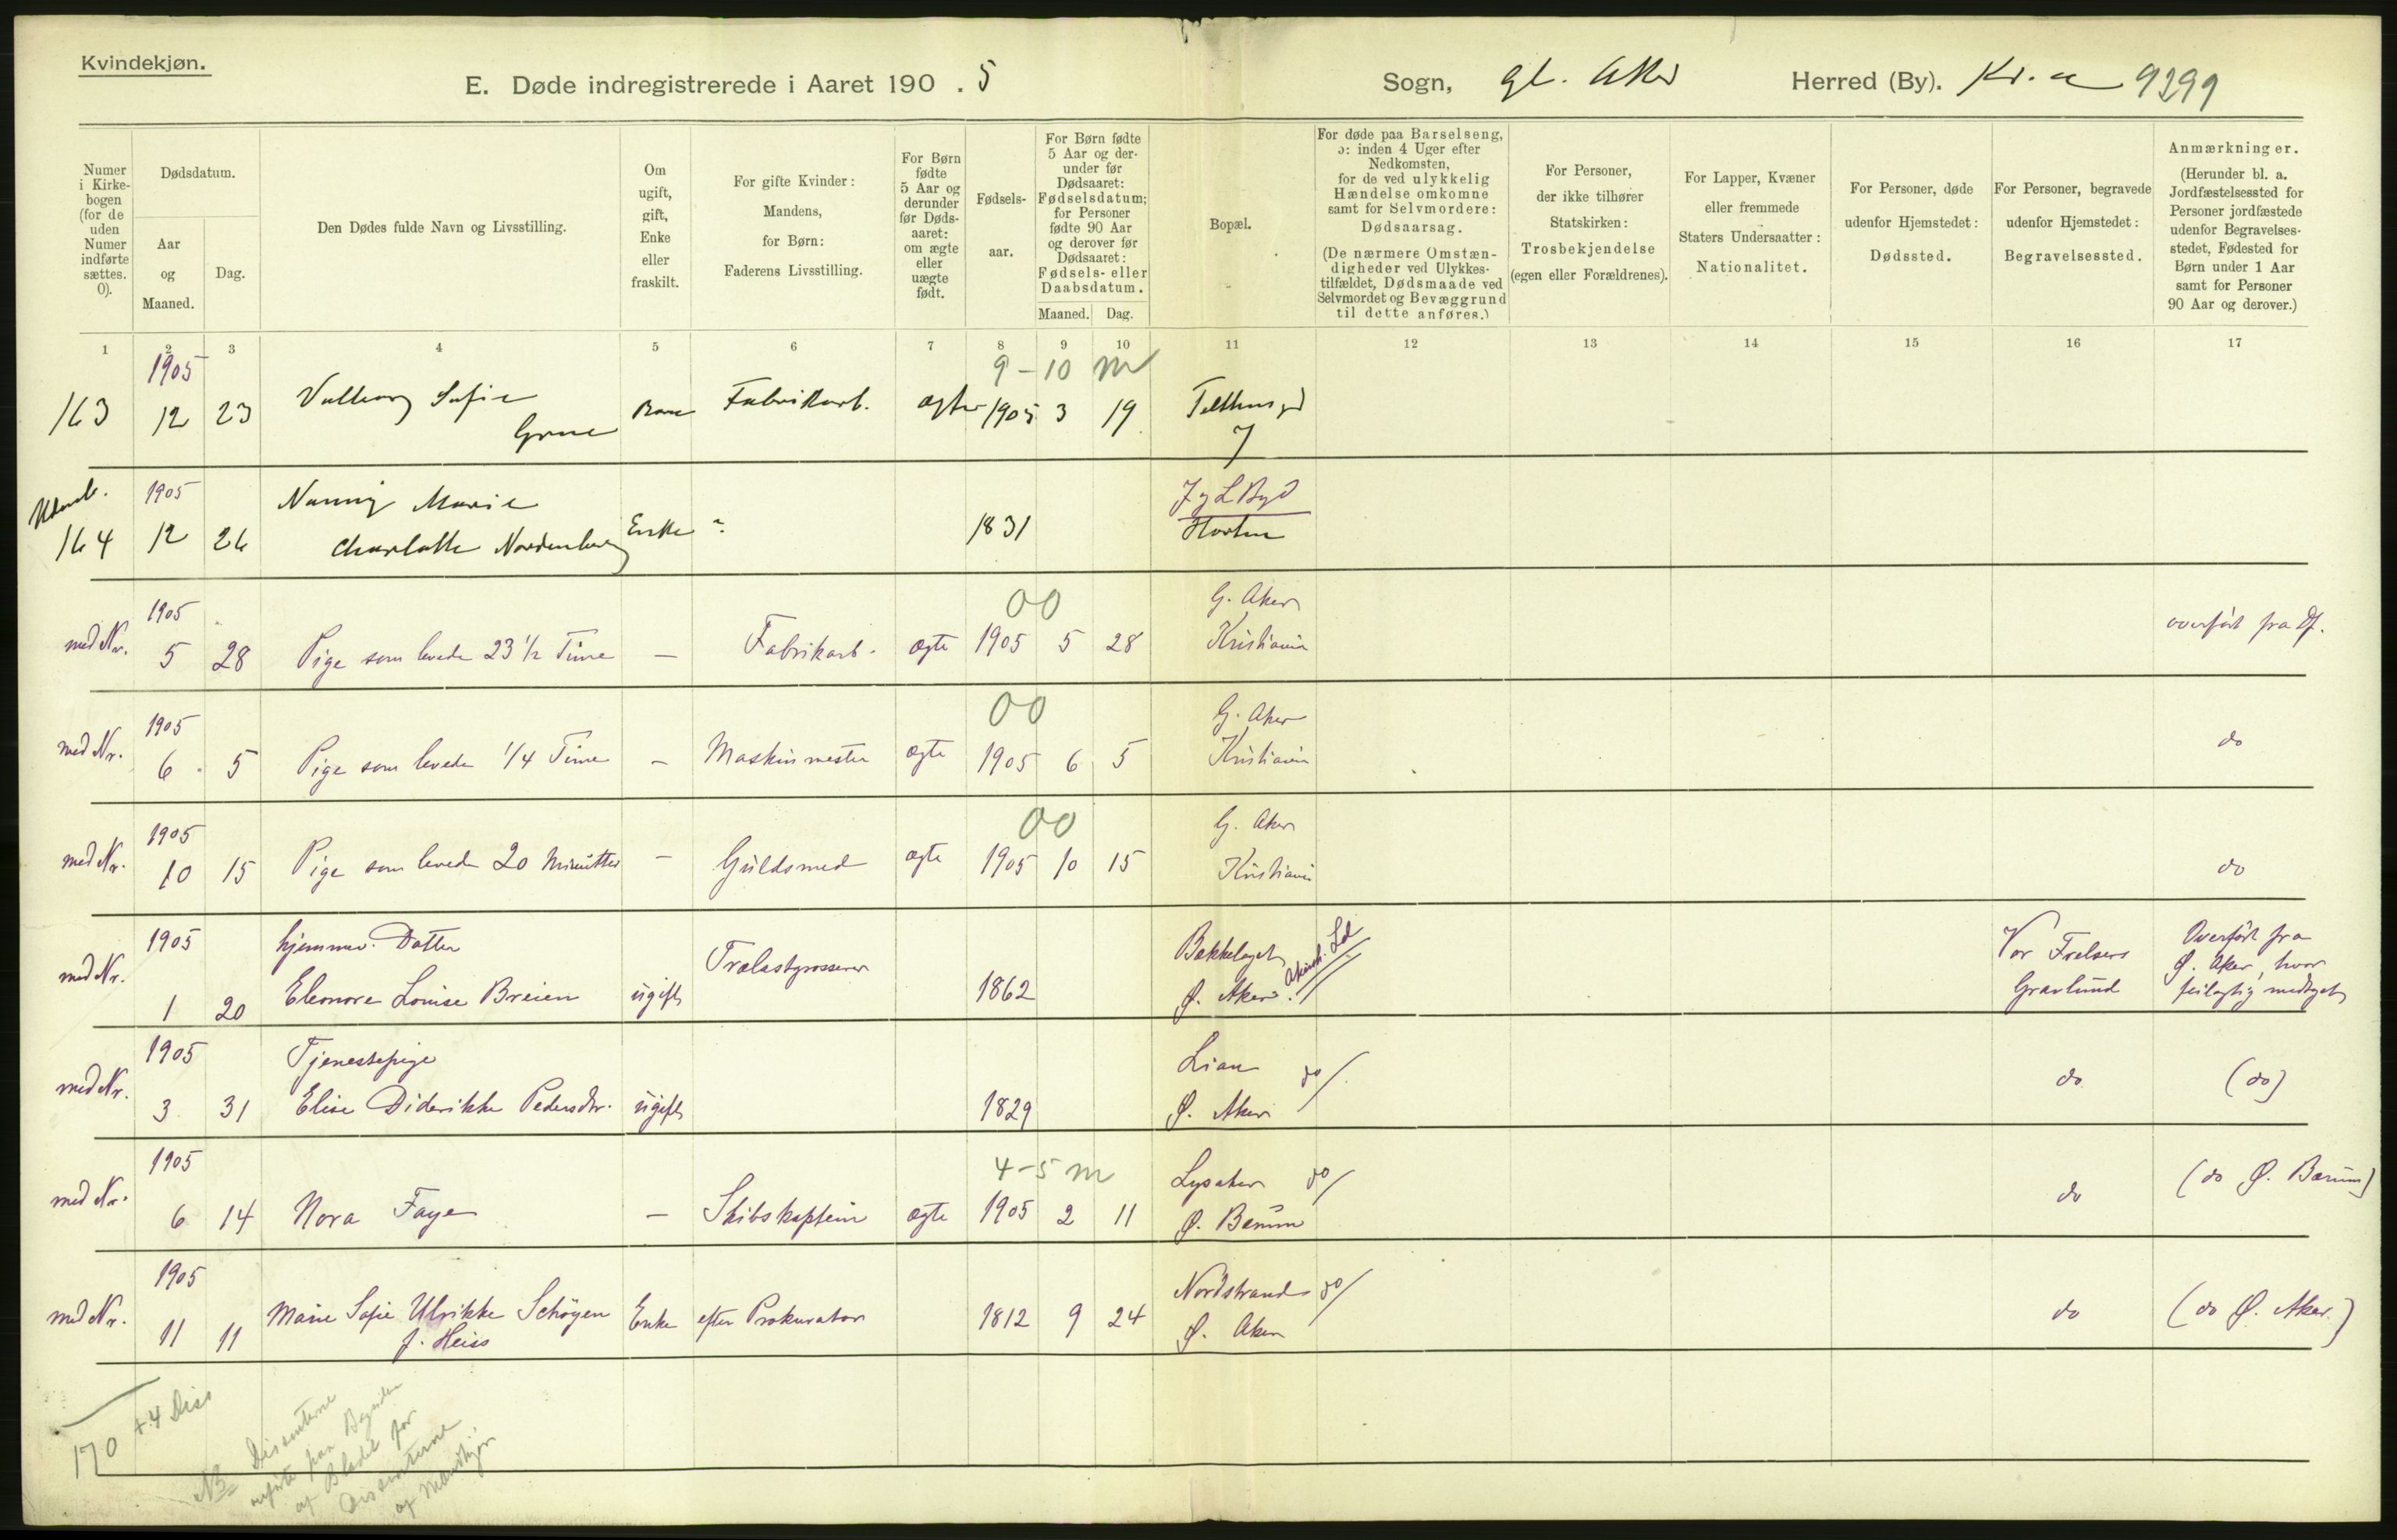 Kvindekjøn.
E. Døde indregistrerede i Aaret 190 . 5 Sogn, gl. Aker Herred (By). Kr.a 9399
Numer i Kirkebogen (for de uden Numer indførte sættes. 0).
Dødsdatum.
Aar og Maaned.
Dag.
Den Dødes fulde Navn og Livsstilling.
Om ugift, gift, Enke eller fraskilt.
For gifte Kvinder: Mandens, for Børn: Faderens Livsstilling.
For Børn fødte 5 Aar og derunder før Dødsaaret: om ægte eller uægte født.
Fødselsaar.
For Børn fødte 5 Aar og derunder før Dødsaaret: Fødselsdatum; for Personer fødte 90 Aar og derover før Dødsaaret: Fødsels- eller Daabsdatum.
Maaned. Dag.
Bopæl.
For døde paa Barselseng, ɔ: inden 4 Uger efter Nedkomsten, for de ved ulykkelig Hændelse omkomne samt for Selvmordere: Dødsaarsag.
(De nærmere Omstændigheder ved Ulykkestilfældet, Dødsmaade ved Selvmordet og Bevæggrund til dette anføres.)
For Personer, der ikke tilhører Statskirken: Trosbekjendelse (egen eller Forældrenes).
For Lapper, Kvæner eller fremmede Staters Undersaatter: Nationalitet.
For Personer, døde udenfor Hjemstedet: Dødssted.
For Personer, begravede udenfor Hjemstedet: Begravelsessted.
Anmærkninger.
(Herunder bl. a. Jordfæstelsessted for Personer jordfæstede udenfor Begravelsesstedet, Fødested for Børn under 1 Aar samt for Personer 90 Aar og derover.)
1 2 3 4 5 6 7 8 9 10 11 12 13 14 15 16 17
1905 9-10 m
163 12 23 Valborg Sofie Grue Barn Fabrikarb. ægte 1905 3 19 Telthusgd 7
1905
164 12 26 Nanny Marie
Charlotte Nordenberg Enke ~ 1831 Horten
1905 00 G. Aker
med Nr. 5 28 Pige som levede 23 1/2 Time — Fabrikarb. ægte 1905 5 28 Kristiania overført fra Df.
1905 00 G. Aker
med Nr. 6 5 Pige som levede 1/4 Time — Maskinmester ægte 1905 6 5 Kristiania do
1905 00 G. Aker
med Nr. 10 15 Pige som levede 20 Minutter — Guldsmed ægte 1905 10 15 Kristiania do
1905 hjemmev. Datter Trælastgrosserer Bækkelaget Vor Frelsers Overført fra
med Nr. 1 20 Eleonore Louise Breien ugift 1862 Ø. Aker Gravlund Ø. Aker, hvor
feilagtig medtaget
1905 Tjenestepige Lian do
med Nr. 3 31 Elise Diderikke Pedersdtr. ugift 1829 Ø. Aker do (do)
1905 4-5 m Lysaker do
med Nr. 6 14 Nora Faye — Skibskaptein ægte 1905 2 11 Ø. Bærum do (do Ø. Bærum)
1905 Nordstrand do
med Nr. 11 11 Marie Sofie Ulrikke Schøyen Enke efter Prokurator 1812 9 24 Ø. Aker do (do Ø. Aker.)
f. Heiss
170 + 4 Diss
NB Dissenterne
anførte paa Bagsiden
af Bladet for
Dissenterne
af Mandkjøn